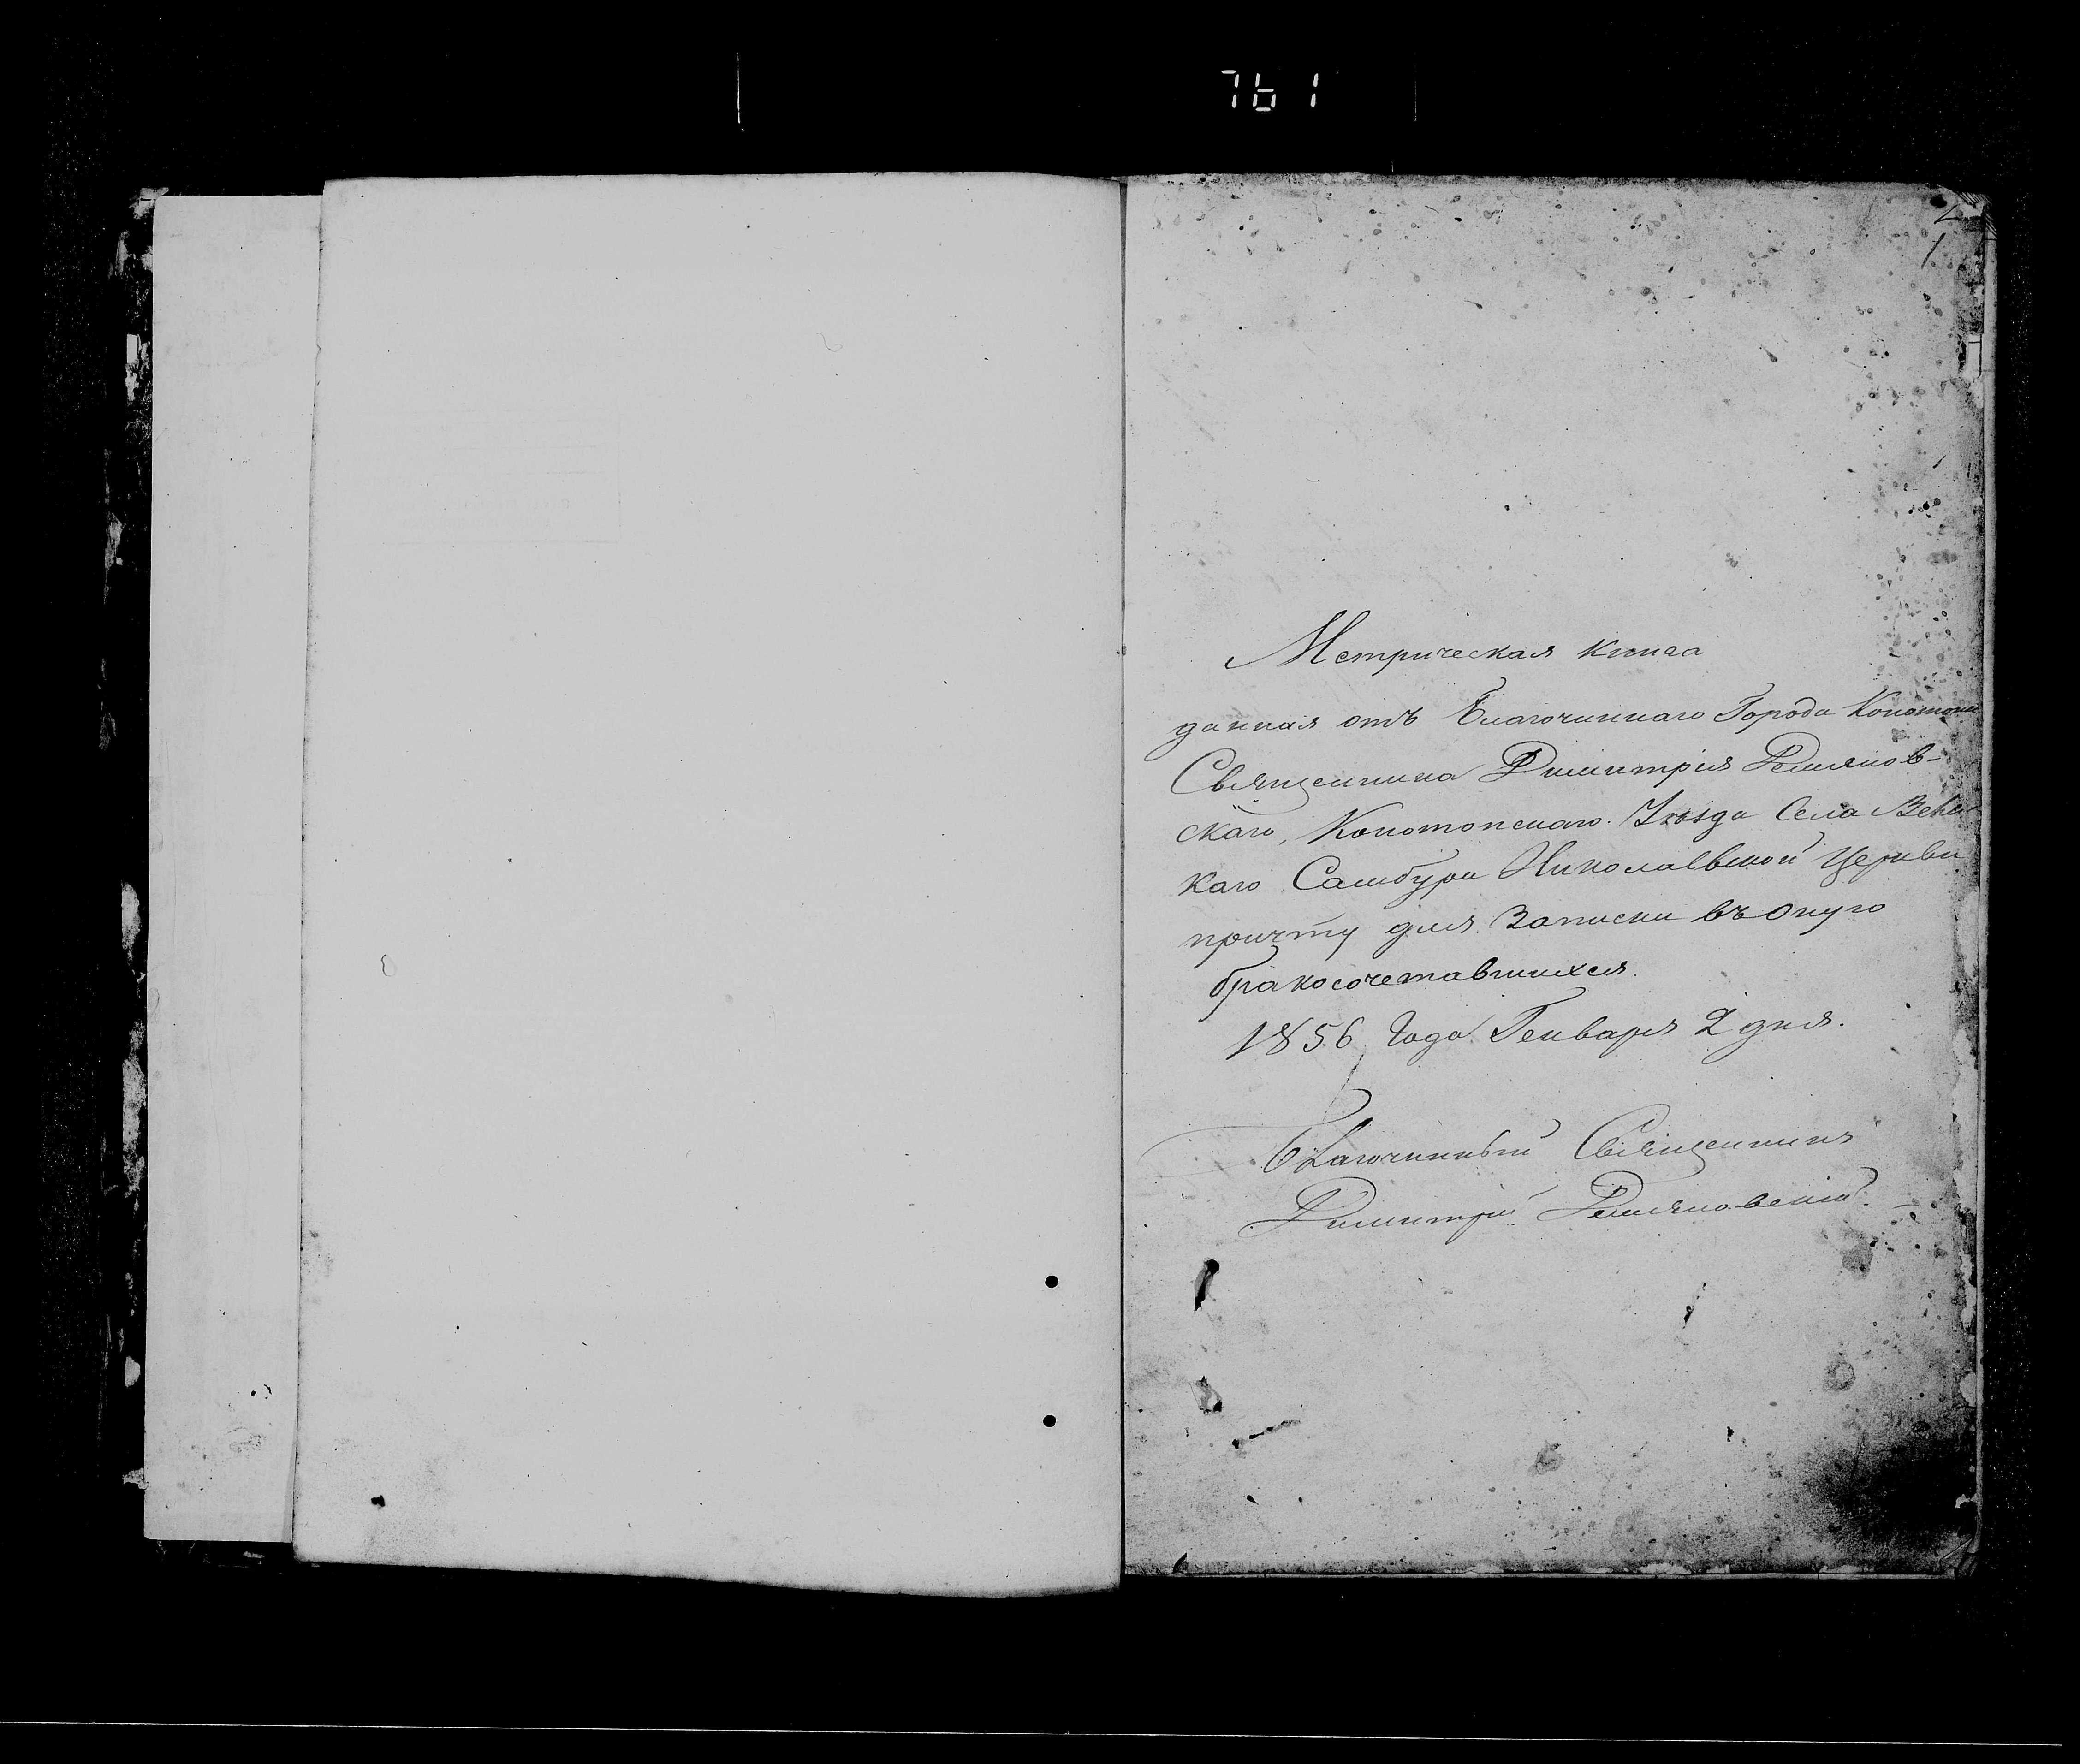 761
2
1
Метрическая книга
данная отъ Благочиннаго Города Конотопа
Священника Димитрія Ремянов-
скаго, Конотопскаго Уѣзда Села Вели
каго Самбура Николаевской Церкви
причту для Записки въ оную
бракосочетавшихся.
1856 Года Генваря 2 дня.
Благочинный Священникъ
Димитрій Ремяновскій.